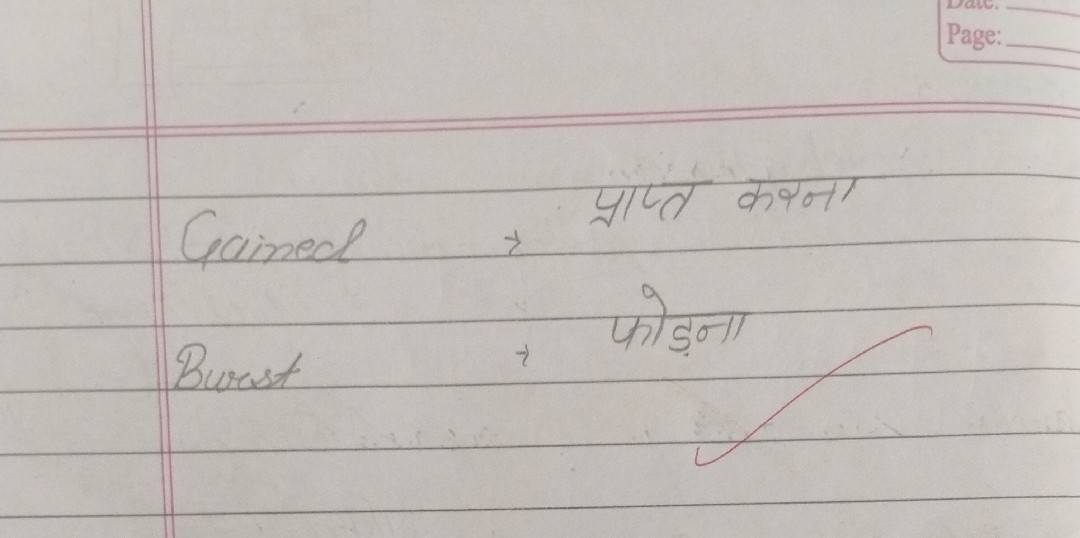 Date:
Page:
Gained → प्राप्त करना
Burst → फोड़ना